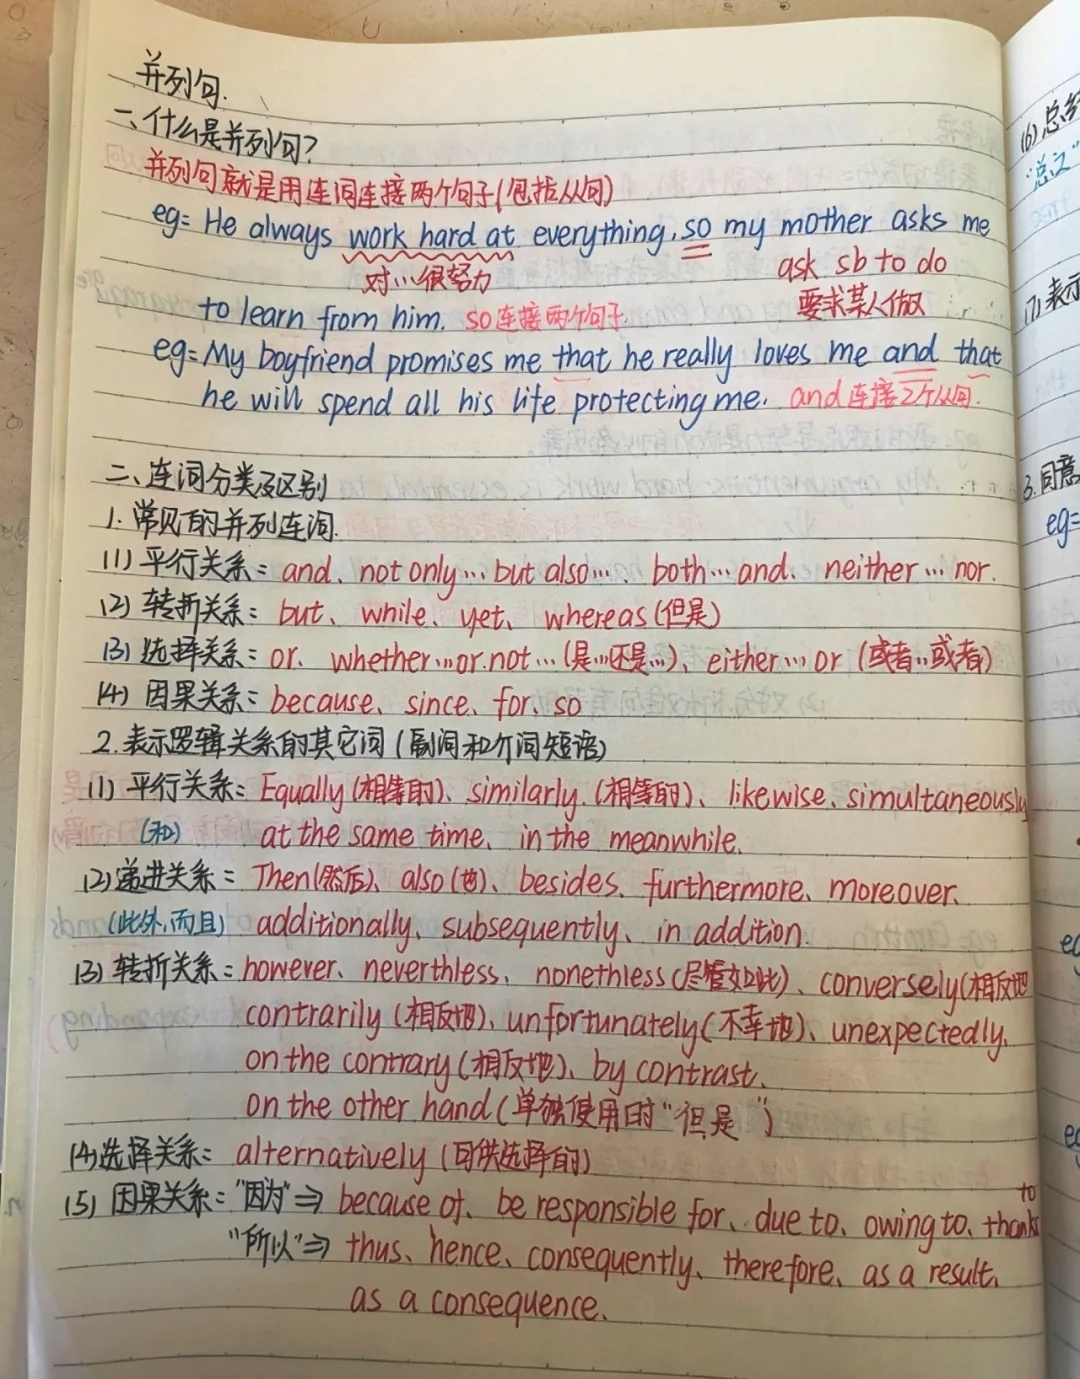 并列句.
一、什么是并列句?
并列句就是用连词连接两个句子(包括从句)
eg: He always work hard at everything, so my mother asks me
对…很努力
ask sb to do
to learn from him. so连接两个句子.
要求某人做
eg: My boyfriend promises me that he really loves me and that
he will spend all his life protecting me. and连接2个从句.
二、连词分类及区别
1.常见的并列连词.
(1)平行关系: and、not only… but also…、both… and、neither… nor.
(2)转折关系: but、while、yet、whereas(但是)
(3)选择关系: or、whether…or not…(是…还是…)、either… or (或者..或者)
(4)因果关系: because、since、for、so
2.表示逻辑关系的其它词(副词和介词短语)
(1)平行关系: Equally(相等的)、similarly.(相等的)、likewise、simultaneously
(和) at the same time、in the meanwhile、
(2)递进关系: Then(然后)、also(也)、besides、furthermore、moreover、
(此外,而且) additionally、subsequently、in addition.
(3)转折关系: however、neverthless、nonethless(尽管如此)、conversely(相反地
contrarily(相反地)、unfortunately(不幸地)、unexpectedly、
on the contrary(相反地)、by contrast、
on the other hand(单独使用时"但是")
(4)选择关系: alternatively(可供选择的)
(5)因果关系: "因为"⇒ because of、be responsible for、due to、owing to、thanks to
"所以"⇒ thus、hence、consequently、therefore、as a result、
as a consequence、
(6)总结
"总之"
(7)表示
3.同意
eg: